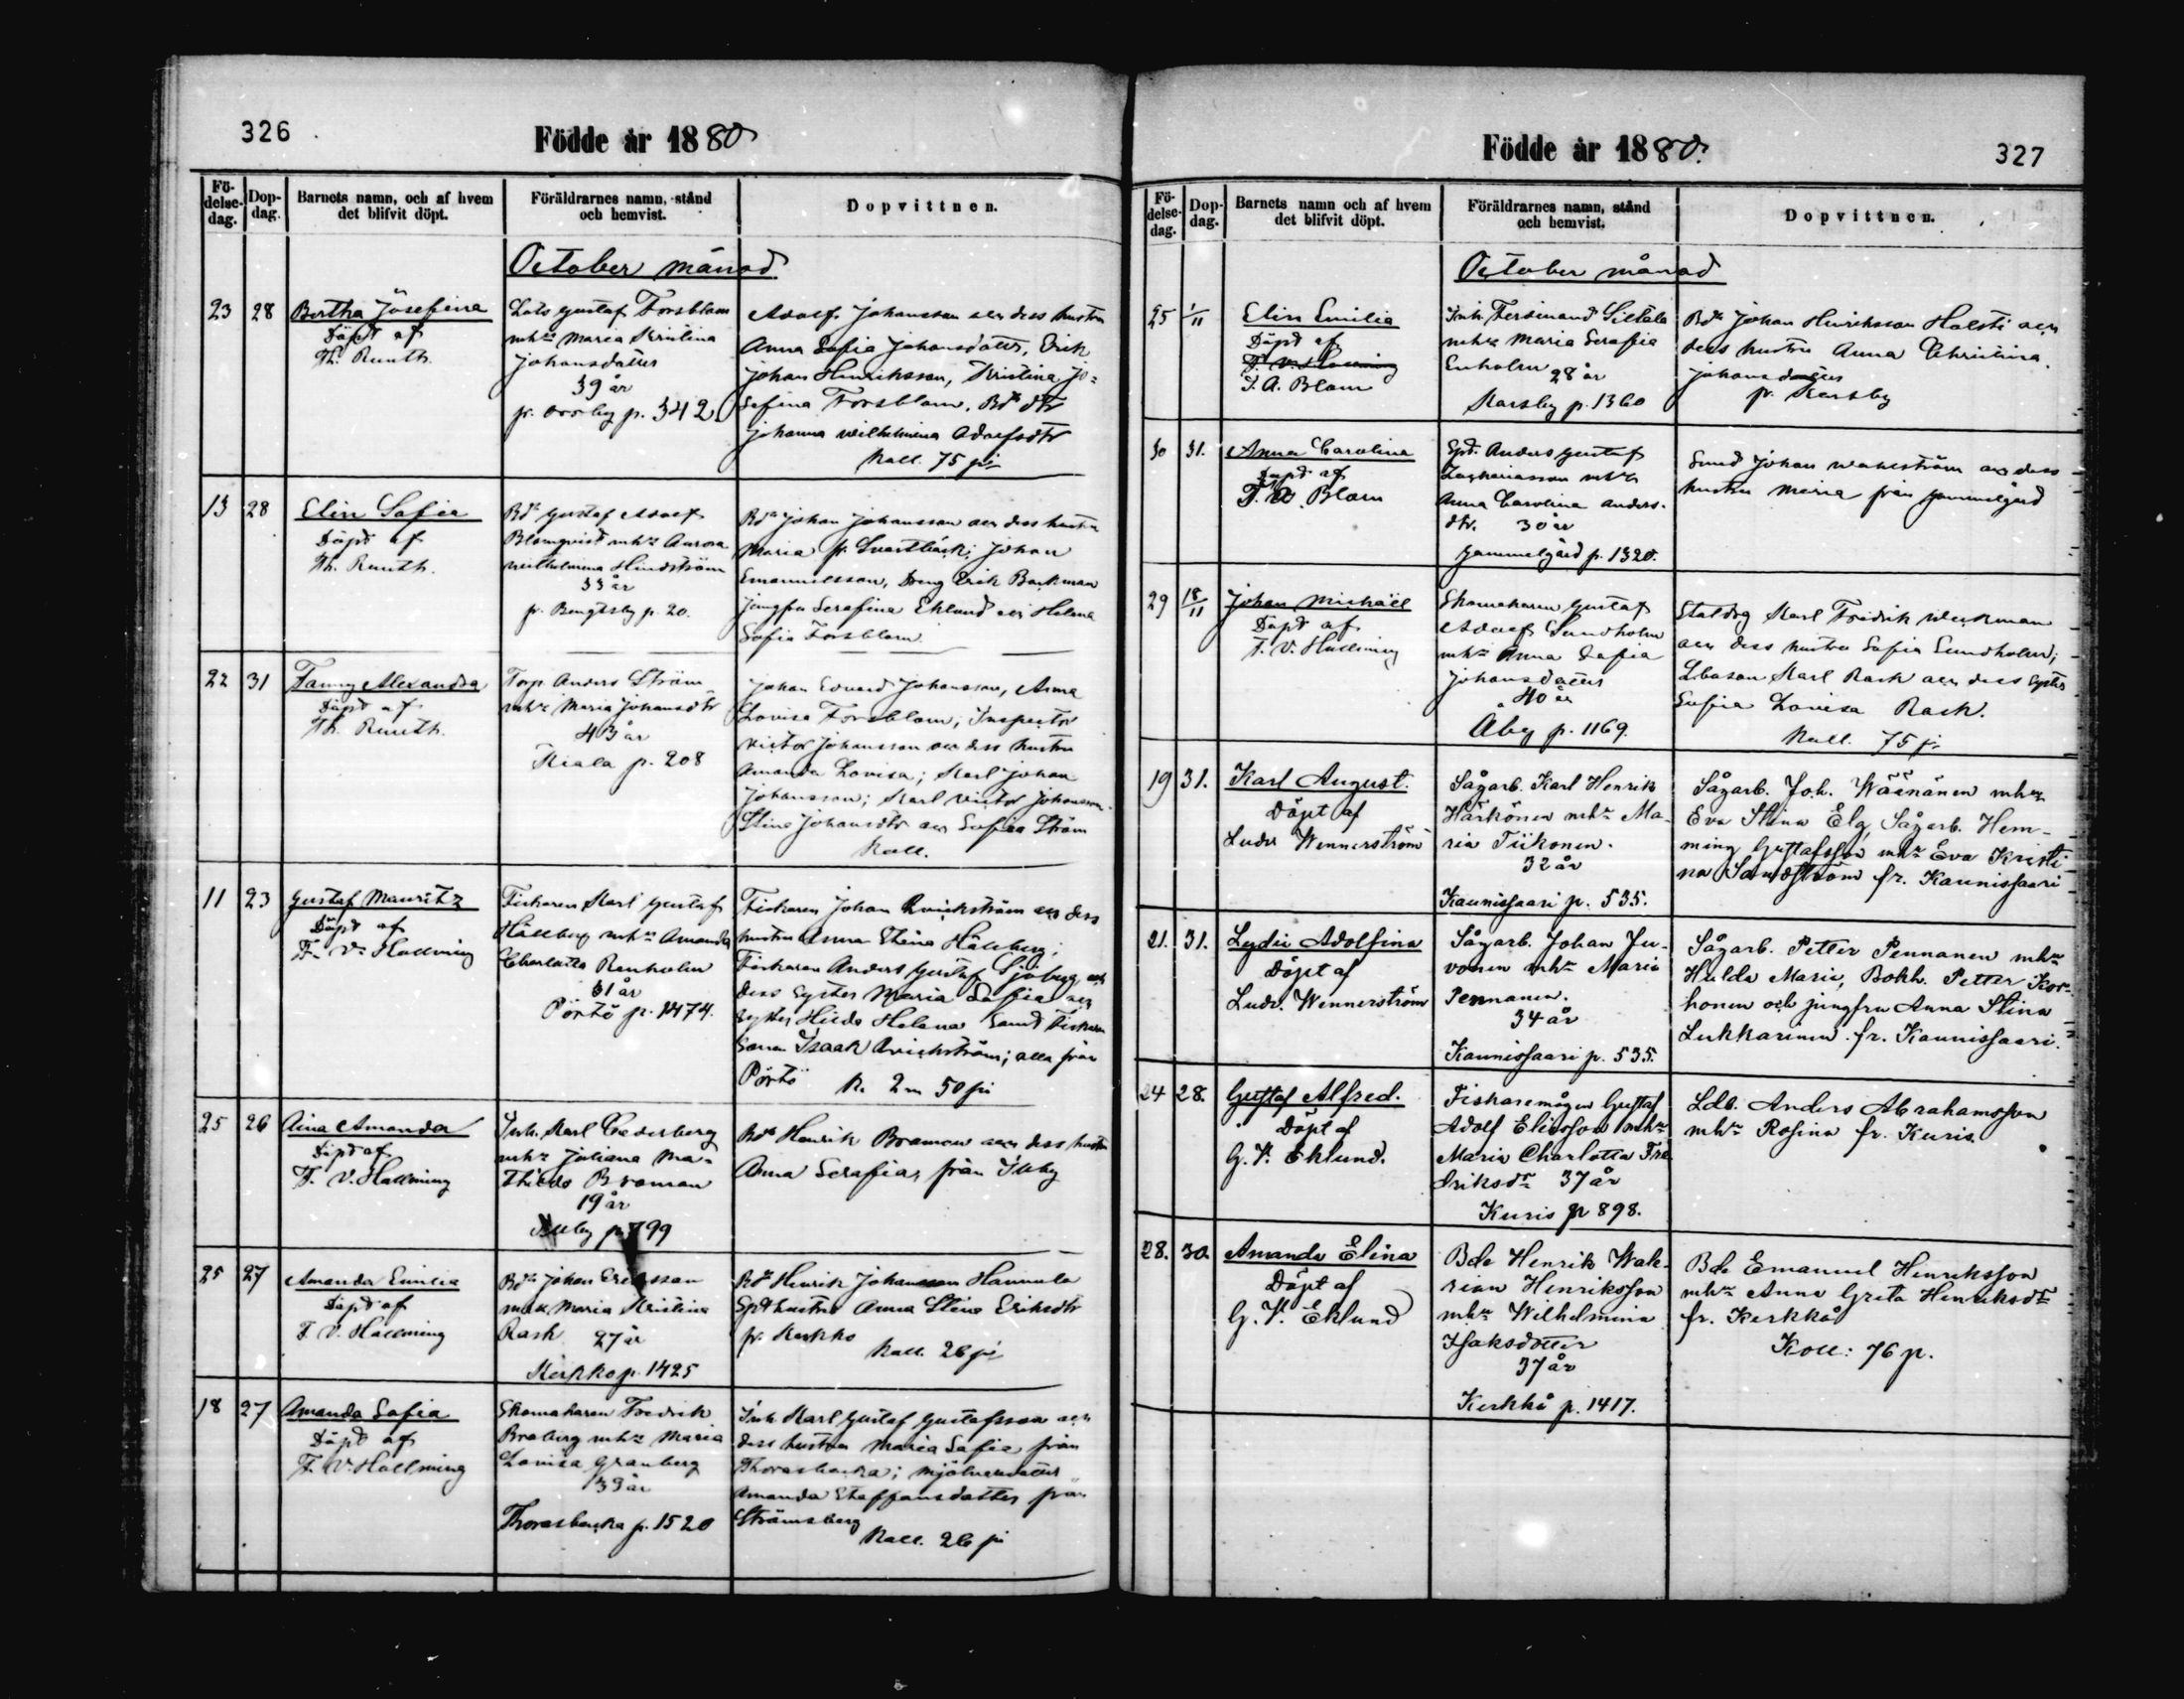 326
Födde år 1880
Fö-
delse-
dag.
Dop-
dag.
Barnets namn, och af hvem
det blifvit döpt.
Föräldrarnes namn, stånd
och hemvist.
Dopvittnen.
October månad
23
28
Bertha Josefina
Döpt af
Th. Ruuth.
Lots Gustaf Forsblom
mhu Maria Kristina
Johansdatter
39 år
p. 342
Adolf Johansson och dess hustru
Anna Sofia Johansdotter, Erik
Johan Henriksson, Kristina Jo-
sefina Forsblom. Bde dtr
Johanna Wilhelmina Adolfsdtr
Koll. 75 pi
13
28
Elin Sofia
Döpt af
Th. Ruuth.
Bde Gustaf Adolf
Blomqvist mhu Aurora
Wilhelmina Lindström
33 år
fr. Bengtsby p. 20.
Bde Johan Johansson och dess hustru
Maria fr. Svartbäck; Johan
Emanuelsson, Dreng Erik Backman
jungfru Serafina Eklund och Helena
Sofia Forsblom
22
31
Fanny Alexandra
Döpt af
Th. Ruuth.
Torp. Anders Ström
mhu Maria Johansdtr
43 år
Kiala p. 208
Johan Edvard Johansson, Anna
Lovisa Forsblom; Inspector
Victor Johansson och dess hustru
Amanda Lovisa; Karl Johan
Johansson; Karl Victor Johansson
Stina Johansdtr och Sofia Ström
Koll.
11
23
Gustaf Mauritz
Döpt af
F. V. Hallming
Fiskaren Karl Gustaf
Hållberg mhu Amanda
Charlotta Renholm
31 år
Pörtö p. 1474.
Fiskaren Johan Qvickström och dess
hustru Anna Stina Hållberg;
Fiskaren Anders Gustaf Sjöberg och
dess syster Maria Sofia och
syster Hilda Helena samt Fiskare
sonen Isaak Qvickström; alla från
Pörtö K. 2 m 50 pi
25
26
Aina Amanda
Döpt af
F. V. Hallming
Inh. Karl Cederberg
mhu Johana Ma-
thilda Broman
19 år
Illby p. 799
Bde Henrik Broman och dess hustru
Anna Serafia, från Illby
25
27
Amanda Emilia
Döpt af
F. V. Hallming
Bde Johan Ericsson
mhu Maria Kristina
Rask 27 år
Kerkko p. 1425
Bde Henrik Johansson Hannula
hustru Anna Stina Eriksdtr
fr. Kerkko
Koll. 26 pi
18
27
Amanda Sofia
Döpt af
F. V. Hallming
Skomakaren Fredrik
Broberg mhu Maria
Lovisa Granberg
39 år
Thorasbacka p. 1520
Inh. Karl Gustaf Gustafsson och
dess hustru Maria Sofia från
Thorasbacka;
Amanda Staffansdotter från
Strömsberg
Koll. 26 pi
Födde år 1880.
327
Fö-
delse-
dag.
Dop-
dag.
Barnets namn och af hvem
det blifvit döpt.
Föräldrarnes namn, stånd
och hemvist.
Dopvittnen.
October månad
25
1/11
Elin Emilia
Döpt af
F. V. Hallming
F. A. Blom
Inh. Ferdinand Siltala
mhu Maria Serafia
Enholm 28 år
Karsby p. 1360
Bde Johan Henriksson Holsti och
dess hustru Anna Christina
Johansdotter
fr. Karsby
30
31.
Anna Carolina
Döpt af
F. A. Blom
Anders Gustaf
Zachariasson mhu
Anna Carolina Anders-
dtr. 30 år
Gammelgård p. 1320.
Johan Wahlström och dess
hustru Maria från Gammelgård
29
18/11
Johan Michael
Döpt af
F. V. Hallming
Skomakaren Gustaf
Adolf Sundholm
mhu Anna Sofia
Johansdatter
40 år
Åby p. 1169.
Staldrg Karl Fredrik Weckman
och dess hustru Sofia Sundholm;
Karl Rask och dess syster
Sofia Lovisa Rask.
Koll. 75 pi
19
31.
Karl August.
Döpt af
Ludv Wennerström
Sågarb. Karl Henrik
Härkönen mhu Ma-
ria Tiikonen.
32 år
Kaunissaari p. 535.
Sågarb. Joh. Wäänänen mhu
Eva Stina Elg, Sågarb. Hem-
ming Gustafsson mhu Eva Kristi-
na Sandström fr. Kaunissaari
21.
31.
Lydia Adolfina
Döpt af
Ludv. Wennerström
Sågarb. Johan Ju-
vonen mhu Maria
Pennanen.
34 år
Kaunissaari p. 535.
Sågarb. Petter Pennanen mhu
Hulda Maria, Bokh. Petter Kor-
honen och jungfru Anna Stina
Lukkarinen. fr. Kaunissaari.
24
28.
Gustaf Alfred.
Döpt af
G. V. Eklund.
Fiskaremågen Gustaf
Adolf Eliasson mhu
Maria Charlotta Fre
driksdr 37 år
Kuris p 898.
Ldb. Anders Abrahamsson
mhu Rosina fr. Kuris
28.
30.
Amanda Elina
Döpt af
G. V. Eklund
Bde Henrik Wak-
rian Henriksson
mhu Wilhelmina
Isaksdotter
37 år
Kerkkå p. 1417.
Bde Emanuel Henriksson
mhu Anna Greta Henriksdr
fr. Kerkkå
Koll: 76 p.